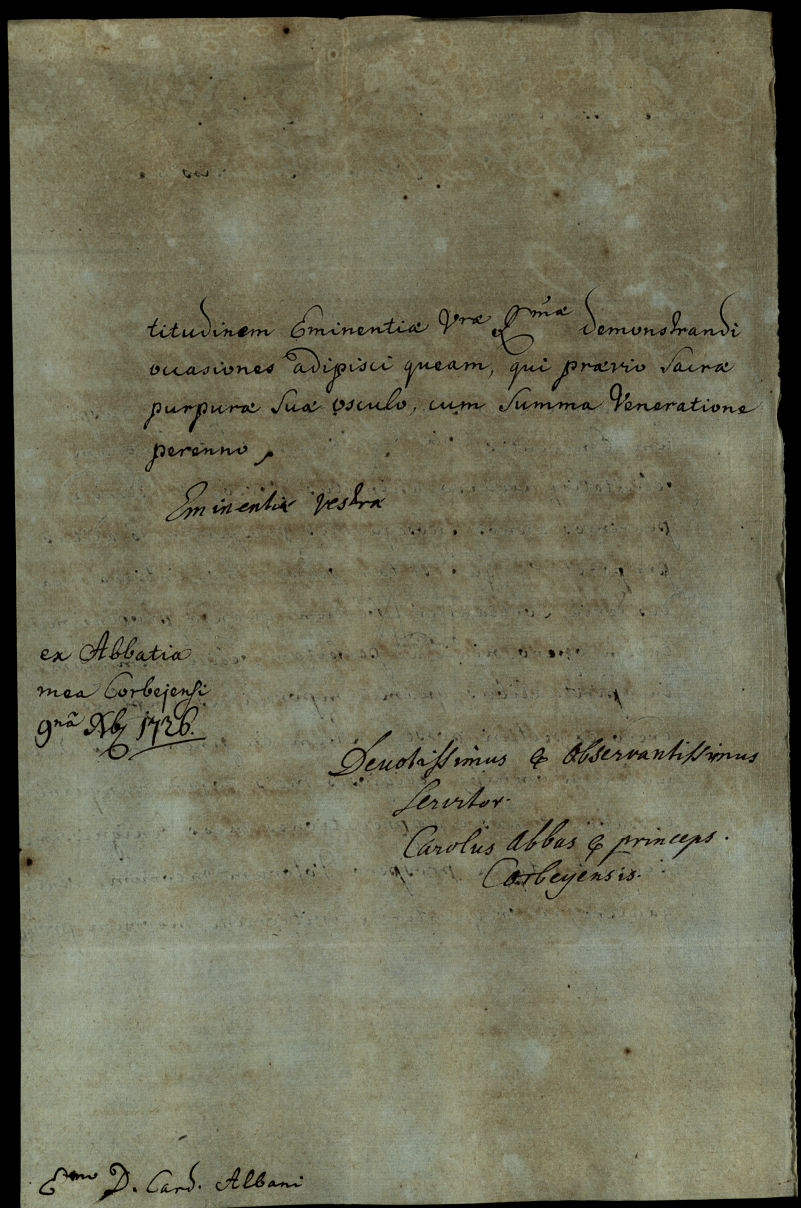 titudinem Eminentiæ Vræ Rmæ demonstrandi
occasiones adipisci queam, qui prævio Sacræ
purpuræ Suæ osculo, cum Summa Veneratione
perenno,
Eminentiæ Vestræ
ex Abbatia
mea Corbejensi
9nâ Xbr 1726.
Devotissimus & Observantissimus
Servitor.
Carolus Abbas & princeps.
Corbeyensis.
Emo D. Card. Albani